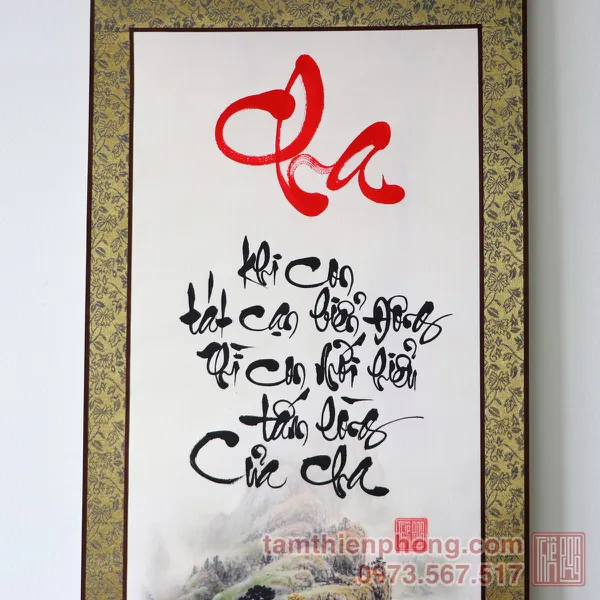 Cha
Khi con
tát cạn biển Đông
Thì con mới hiểu
tấm lòng
Của cha
tamthienphong.com
0973.567.517